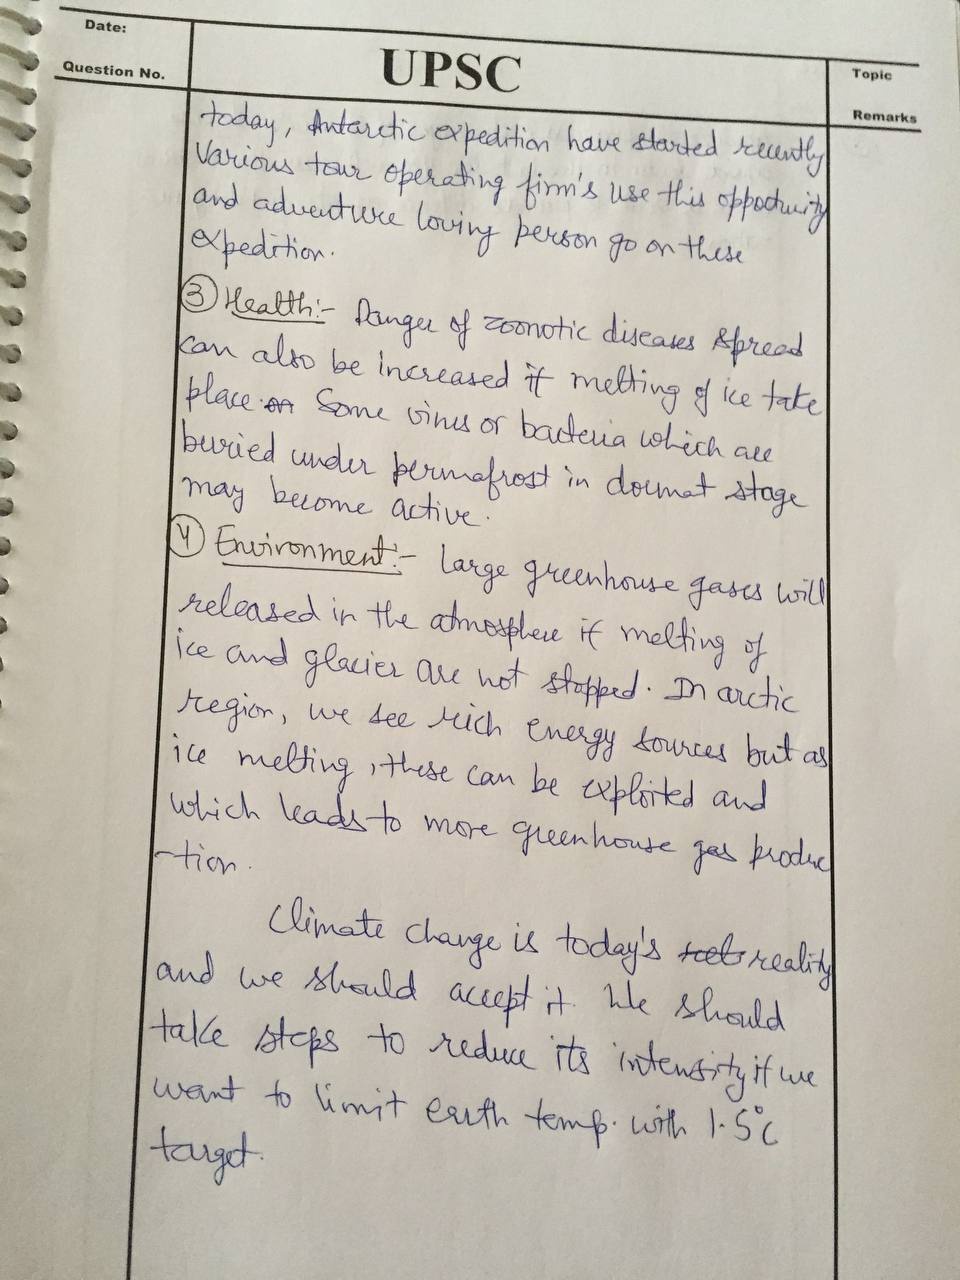 Date:
Question No.
UPSC
Topic
Remarks
today, Antarctic expedition have started recently
Various tour operating firm's use this oppoctuity
and adventure loving person go on these
expedition.
③ Health:- Danger of zoonotic diseases spread
can also be increased if melting of ice take
place. Some virus or bacteria which are
buried under permafrost in dormat stage
may become active.
④ Environment:- Large greenhouse gases will
released in the atmosphere if melting of
ice and glacier are not stopped. In arctic
region, we see rich energy sources but as
ice melting, these can be exploited and
which leads to more greenhouse gas produc
-tion.
Climate change is today's reality
and we should accept it. We should
take steps to reduce its intensity if we
want to limit earth temp. with 1.5°C
target.